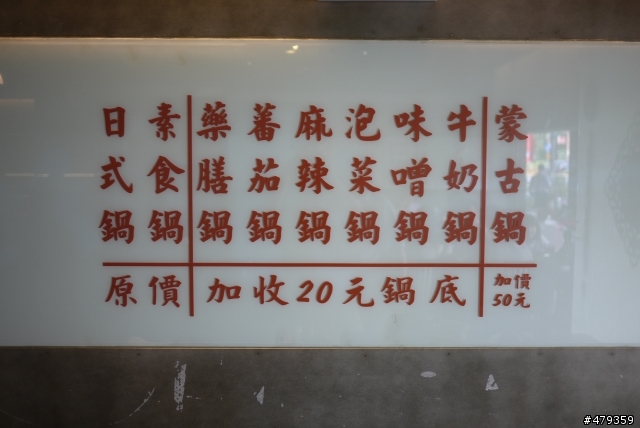 日式鍋
素食鍋
藥膳鍋
蕃茄鍋
麻辣鍋
泡菜鍋
味噌鍋
牛奶鍋
蒙古鍋
原價
加收20元鍋底
加價
50元
#479359